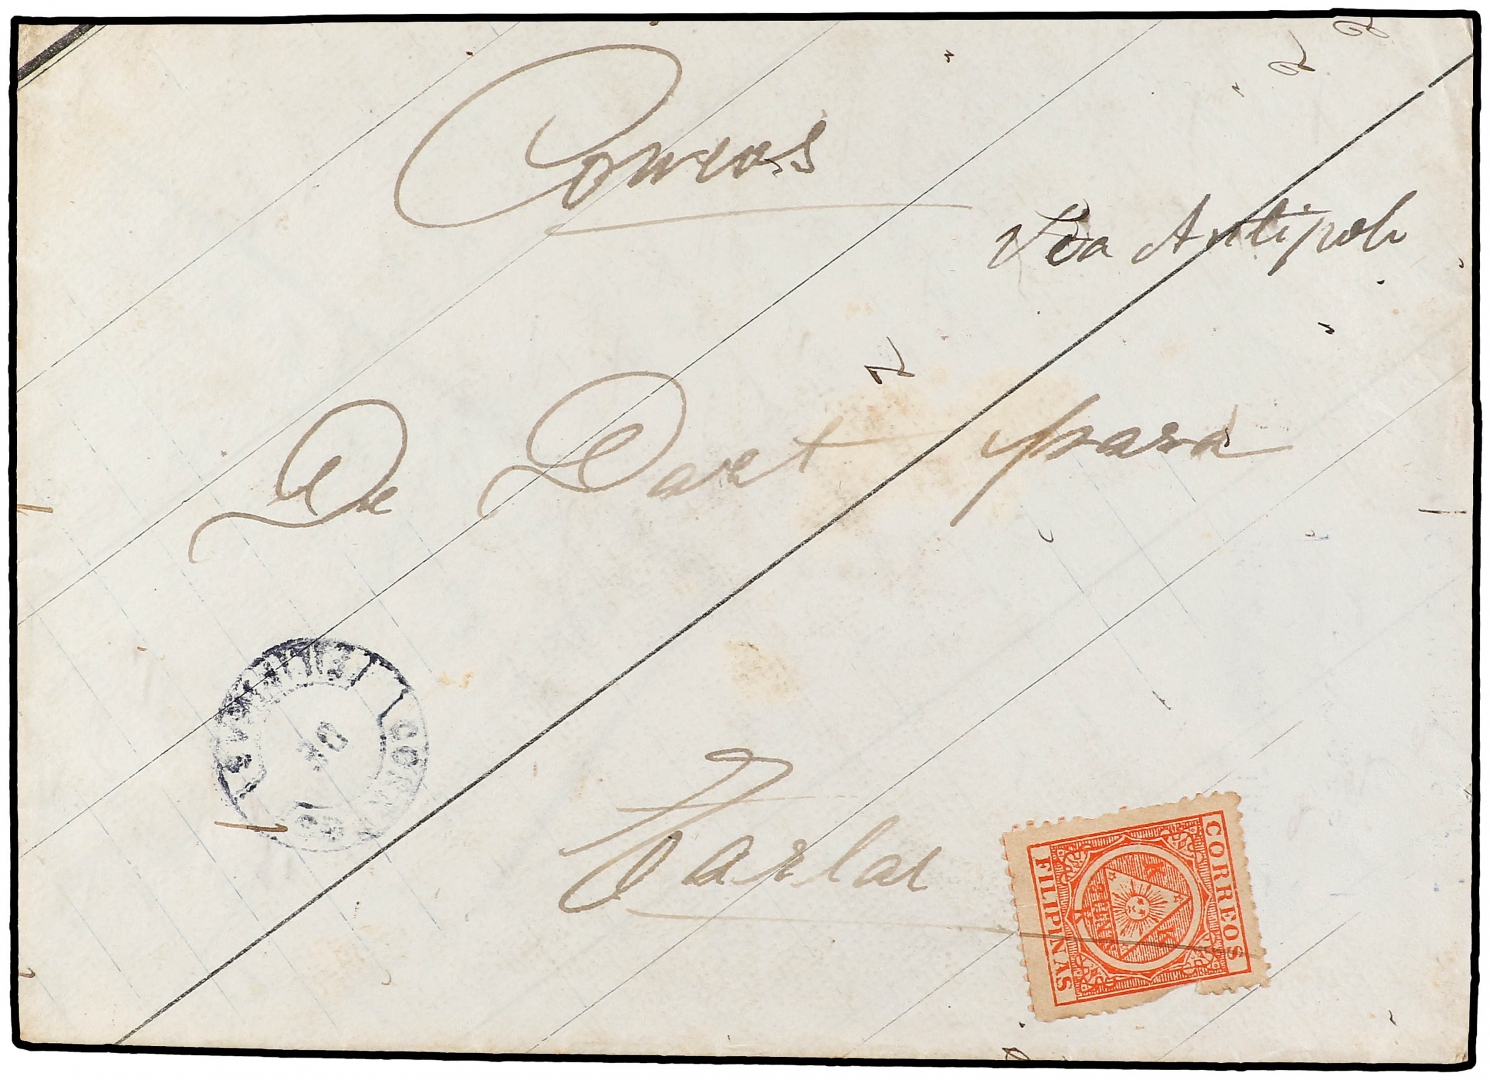 Correos
Via Antipolo
De Daet para
Tarlac
CORREOS
FILIPINAS
K K K